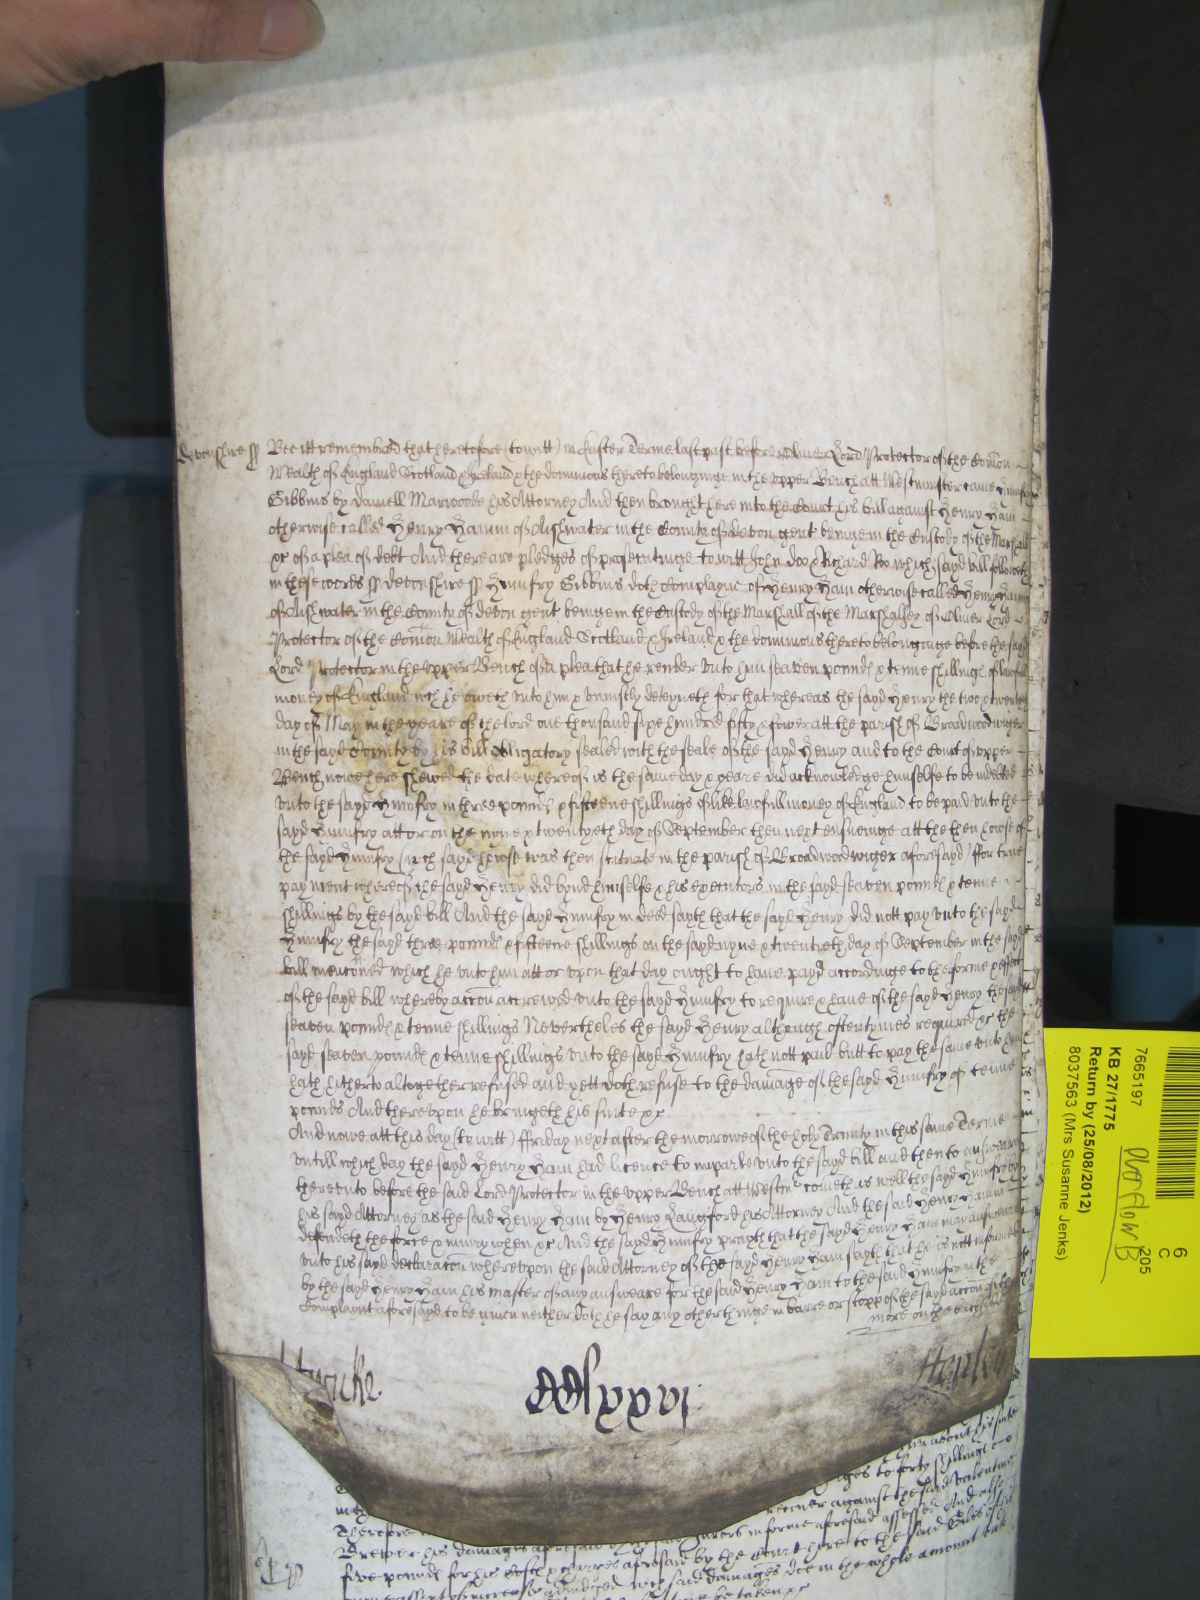 Devonshire ss Bee itt remembred that heretofore (to witt) in Easter Terme last past before Oliver Lord Protector of the Com̄on
Wealth of England Scotland & Ireland & the dominions thereto belonginge in the upper Bench att Westminster came Humfry
Gibbins by Daniell Marwoode his Attorney And then brought here into the Court his bill against Henry Ham
otherwise called Henry Hamm of Aishwater in the County of Devon gent beinge in the Custody of the Marshall
&c of a plea of debt And there are pledges of prosecutinge to witt John Doo & Richard Roo which sayd bill followeth
in these words ss Devonshire ss Humfry Gibbins doth Complayne of Henry Ham otherwise called Henry Hamm
of Aishwater in the County of Devon gent beinge in the Custody of the Marshall of the Marshalsey of Oliver Lord
Protector of the Com̄on Wealth of England Scotland & Ireland & the dominions thereto belonginge before the sayd
Lord Protector in the upper Bench of a plea that he render unto him seaven pounds & tenne shillings of lawfull
money of England wch he oweth unto him & uniustly deteyneth for that whereas the sayd Henry the two & twenty
day of May in the yeare of the Lord one thousand sixe hundred fifty & fower att the parish of Broadwoodwiger
in the sayd County by his bill obligatory sealed with the seale of the sayd Henry and to the Court of upper
Bench nowe here shewed the date whereof is the same day & yeare did acknowledge himselfe to be indebted
unto the sayd Humfry in three pounds & fifteene shillings of like lawfull money of England to be paid unto the
sayd Humfry att or on the nyne & twentyeth day of September then next ensueinge att the then howse of
the sayd Humfry (wch sayd howse was then scituate in the parish of Broadwoodwiger aforesayd) ffor true
payment whereof the sayd Henry did bynd himselfe & his executors in the sayd seaven pounds & tenne
shillings by the sayd bill And the sayd Humfry in deed sayth that the sayd Henry did nott pay unto the sayd
Humfry the sayd three pounds & fifteene shillings on the sayd nyne & twentieth day of September in the sayd
bill mencioned which he unto him att or upon that day ought to have payd accordinge to the forme & effect
of the sayd bill whereby accōn accrewed unto the sayd Humfry to require & have of the sayd Henry the sayd
seaven pounds & tenne shillings Nevertheles the sayd Henry although oftentymes required &c the
sayd seaven pounds & tenne shillings unto the sayd Humfry hath nott paid butt to pay the same unto him
hath hitherto altogether refused and yett doth refuse to the damage of the sayd Humfry of tenne
pounds And thereupon he bringeth his suite &c
And nowe att this day (to witt) ffriday next after the morrowe of the holy Trinity in this same Terme
untill which day the sayd Henry Ham had licence to imparle unto the sayd bill and then to answeare
thereunto before the said Lord Protector in the upper Bench att Westmr cometh as well the sayd Humfry by
his sayd Attorney as the said Henry Ham by Henry Langford his Attorney And the said Henry Hamm
defendeth the force & iniury when &c And the sayd Humfry prayth that the sayd Henry Ham may answeare
unto his sayd declaracōn whereupon the said Attorney of the sayd Henry Ham sayth that he is nott informed
by the sayd Henry Ham his Master of any answeare for the said Henry Ham to the said Humfry in the
Complaynt aforesayd to be given neither doth he say any other thinge in barre or stopp of the sayd accōn of the
more on the backside
CClxxvj
KB 27/1775
Return by (25/08/2012)
8037563 (Mrs Susanne Jenks)
7665197
Overflow B
6
C
205